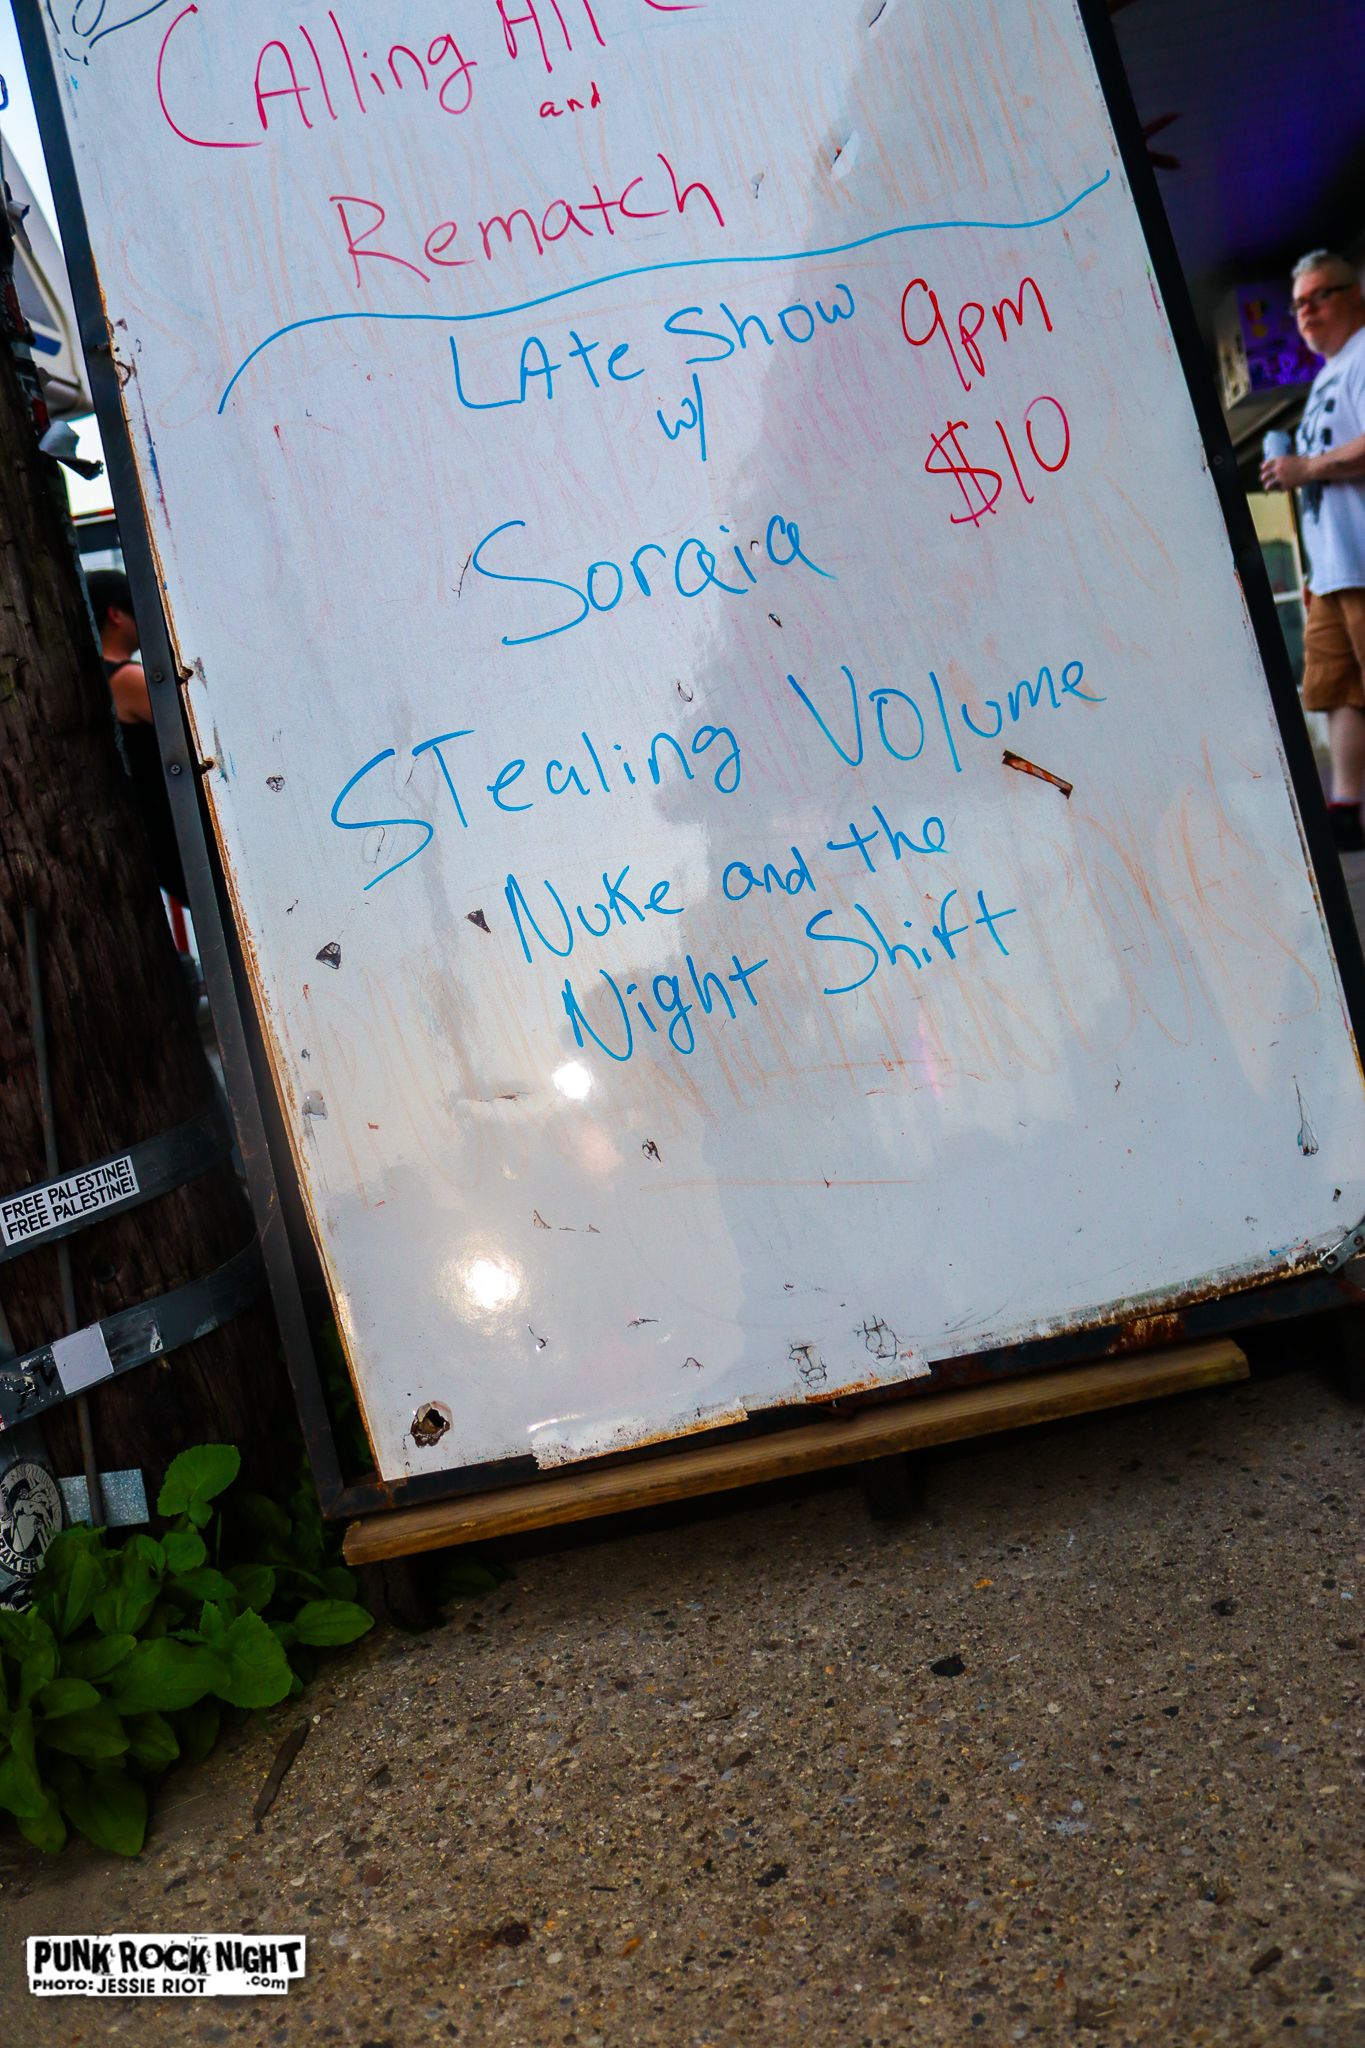 CAlling All
and
Rematch
LAte Show 9pm
w/ $10
Soraia
STealing Volume
Nuke and the
Night Shift
FREE PALESTINE!
FREE PALESTINE!
PUNK ROCK NIGHT
PHOTO: JESSIE RIOT .com